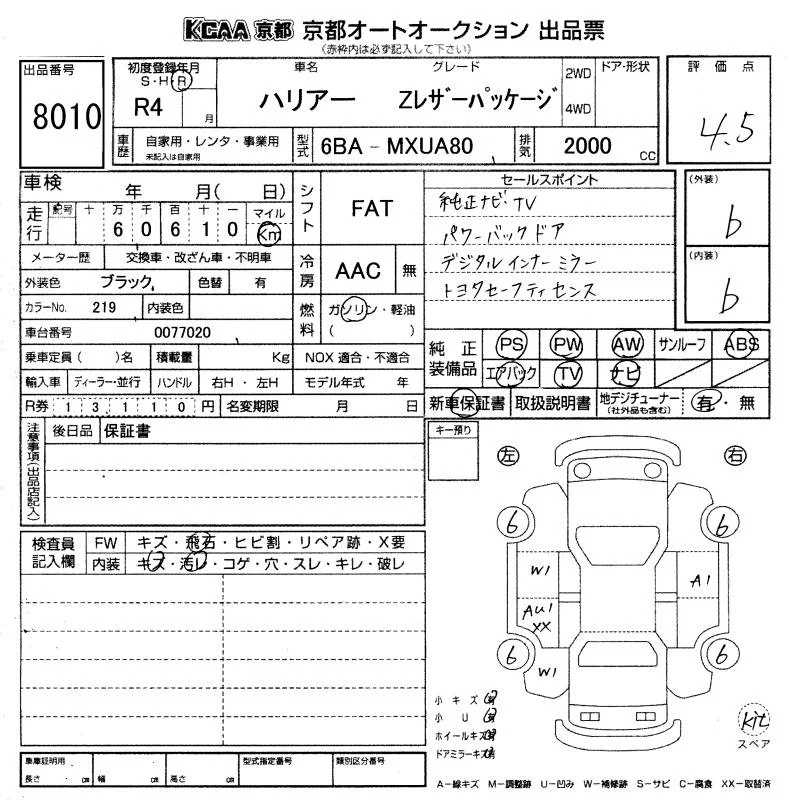 KCAA 京都 京都オートオークション 出品票
(赤枠内は必ず記入して下さい)
出品番号
8010
初度登録年月
S・H・R
R4
月
車名
ハリアー
グレード
Zレザーパッケージ
2WD
4WD
ドア・形状
評価点
4.5
車歴
自家用・レンタ・事業用
未記入は自家用
型式
6BA-MXUA80
排気
2000
CC
車検 年 月( 日)
走行
記号 十 万 千 百 十 一
6 0 6 1 0
マイル
Km
メーター歴 交換車・改ざん車・不明車
外装色 ブラック 色替 有
カラーNo. 219 内装色
車台番号 0077020
乗車定員( )名 積載量 Kg
輸入車 ディーラー・並行 ハンドル 右H・左H
R券 13110円 名変期限 月 日
シフト
FAT
冷房
AAC
無
燃料
ガソリン・軽油
( )
NOX 適合・不適合
モデル年式 年
セールスポイント
純正ナビTV
パワーバックドア
デジタルインナーミラー
トヨタセーフティセンス
(外装)
b
(内装)
b
純正装備品
PS PW AW サンルーフ ABS
エアバック TV ナビ
新車保証書 取扱説明書 地デジチューナー
(社外品も含む)
有・無
注意事項(出品店記入)
後日品 保証書
キー預り
左
右
検査員記入欄
FW キズ・飛石・ヒビ割・リペア跡・X要
内装 キズ・汚レ・コゲ・穴・スレ・キレ・破レ
6
6
W1
A1
AU1
XX
6
6
W1
小キズ 有
小U 有
ホイールキズ 有
ドアミラーキズ 有
kit
スペア
車庫証明用
長さ cm 幅 cm 高さ cm
型式指定番号
類別区分番号
A-線キズ M-調整跡 U-凹み W-補修跡 S-サビ C-腐食 XX-取替済